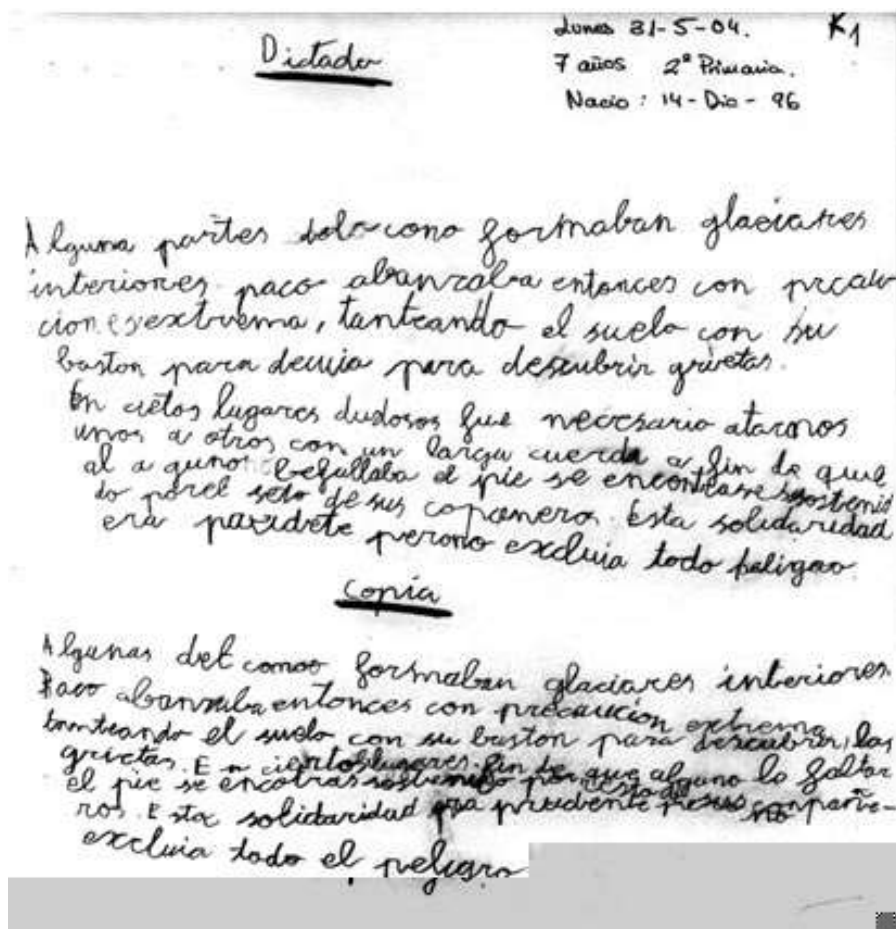 Dictado
Lunes 31-5-04. K1
7 años 2º Primaria.
Nacio: 14-Dic-96
Alguna partes delo cono formaban glaciares
interiores paco abanzaba entonces con precau
cion esextrema, tanteando el suelo con su
baston para para descubrir grietas.
En cietos lugares dudosos fue necesario atarnos
unos a otros con un larga cuerda a fin de que
al a guno el pie se encontrase sostenī
do porel seto de sus copanero. Esta solidaridad
era perono excluia todo peligro.
Copia
Algunas del cono formaban glaciares interiores.
Paco abanzaba entonces con precaución extrema
tanteando el suelo con su baston para descubrir, las
grietas. En ciertos lugares. fin de que alguno lo faltar
el pie se encotras sostenido por resto de
ros. Esta solidaridad era prudente no compañe-
excluia todo el peligro